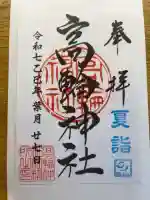 奉拝
夏詣
高輪神社
令和七乙巳年葉月廿七日